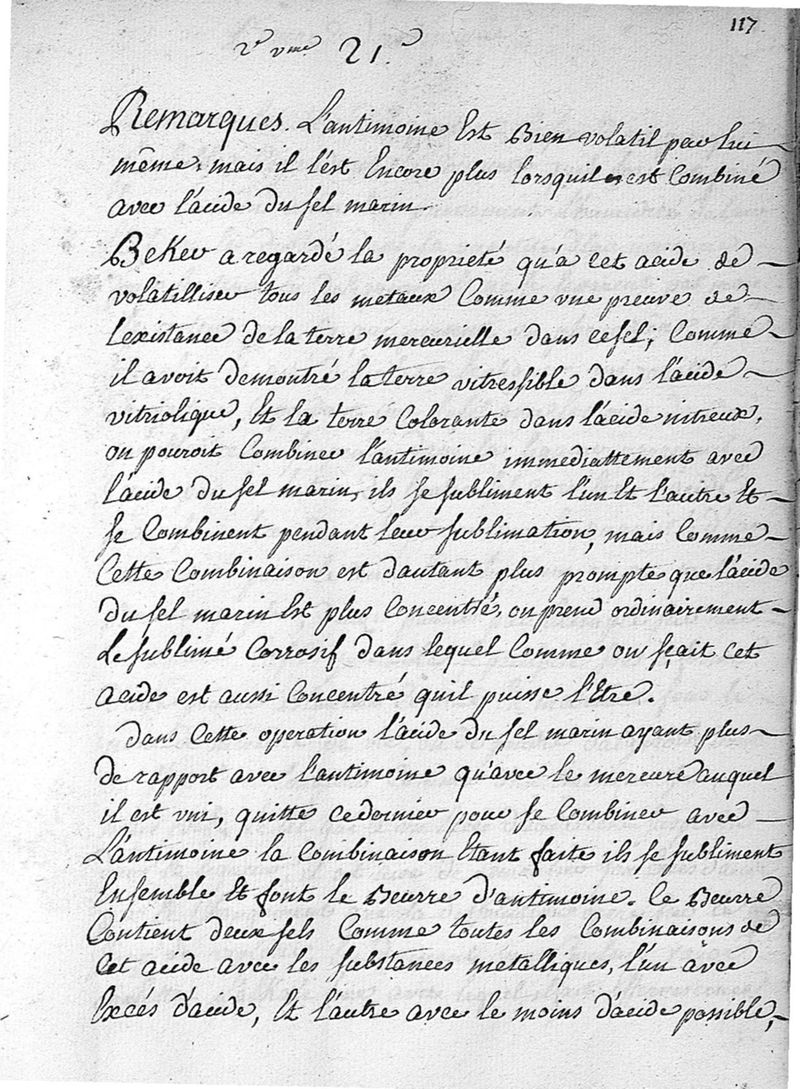 117
2.e vme 21.e
Remarques. L'antimoine Est Bien volatil par lui
même, mais il l'est Encore plus lorsquil est Combiné
avec l'acide du sel marin
Beker a regardé la proprieté qu'a cet acide de
volatilliser tous les metaux Comme vne preuve de
lexistance de la terre mercurielle dans ce sel; Comme
il avoit demontré la terre vitressible dans l'acide
vitriolique, Et la terre Colorante dans l'acide nitreux,
on pouroit Combiner l'antimoine immediattement avec
l'acide du sel marin, ils se subliment l'un Et l'autre Et
se Combinent pendant leur sublimation, mais Comme
Cette Combinaison est d'autant plus prompte que l'acide
du sel marin Est plus Concentré, on prend ordinairement
Le sublimé Corrosif dans lequel Comme on sçait cet
acide est aussi Concentré quil puisse l'Etre.
dans Cette operation l'acide du sel marin ayant plus
de rapport avec l'antimoine qu'avec le mercure auquel
il est vni, quitte ce dernier pour se Combiner avec
L'antimoine la Combinaison Etant faite ils se subliment
Ensemble Et font le Beurre d'antimoine. Ce Beurre
Contient deux sels Comme toutes les Combinaisons de
Cet acide avec les substances métalliques, l'un avec
Excés d'acide, Et l'autre avec le moins d'acide possible,